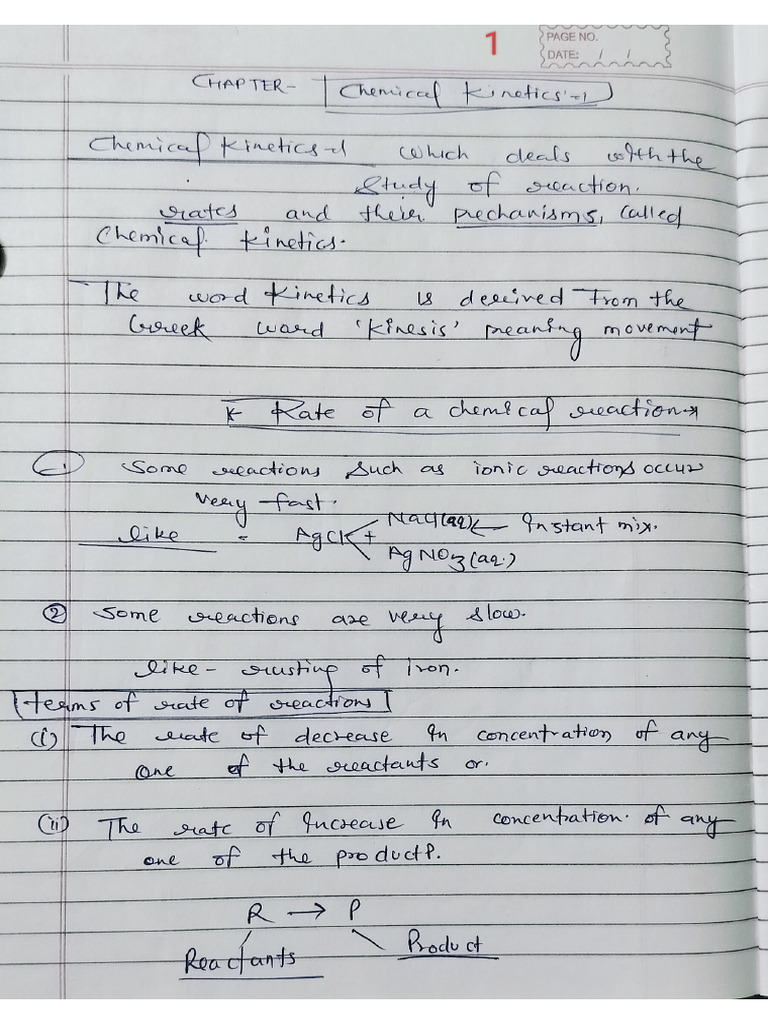 1
PAGE NO.
DATE: / /
CHAPTER- Chemical Kinetics-1
Chemical Kinetics-1 which deals with the
study of reaction.
rates and their mechanisms, called
Chemical. Kinetics.
- The word Kinetics is derived from the
Greek word 'Kinesis' meaning movement
* Rate of a chemical reaction→
1. Some reactions such as ionic reactions occur
very-fast.
like = AgCl + NaCl(aq) ← Instant mix.
AgNO3(aq.)
② Some reactions are very slow.
like - rusting of Iron.
[terms of rate of reactions]
(i) The rate of decrease in concentration of any
one of the reactants or.
(ii) The rate of increase in concentration. of any
one of the product.
R → P
Reactants Product